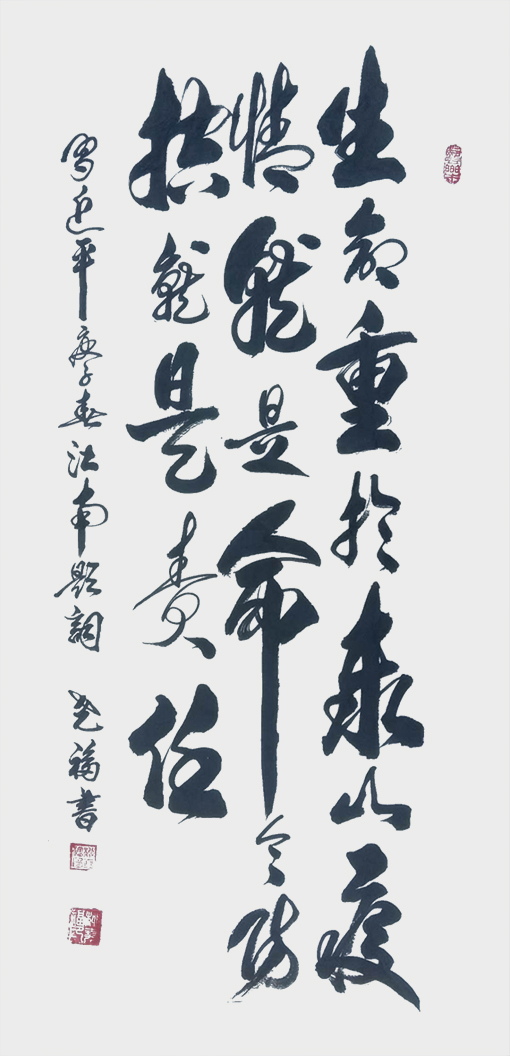 生命重於泰山疫
情就是命令防
控就是责任
習近平庚子春南題詞 尧福書